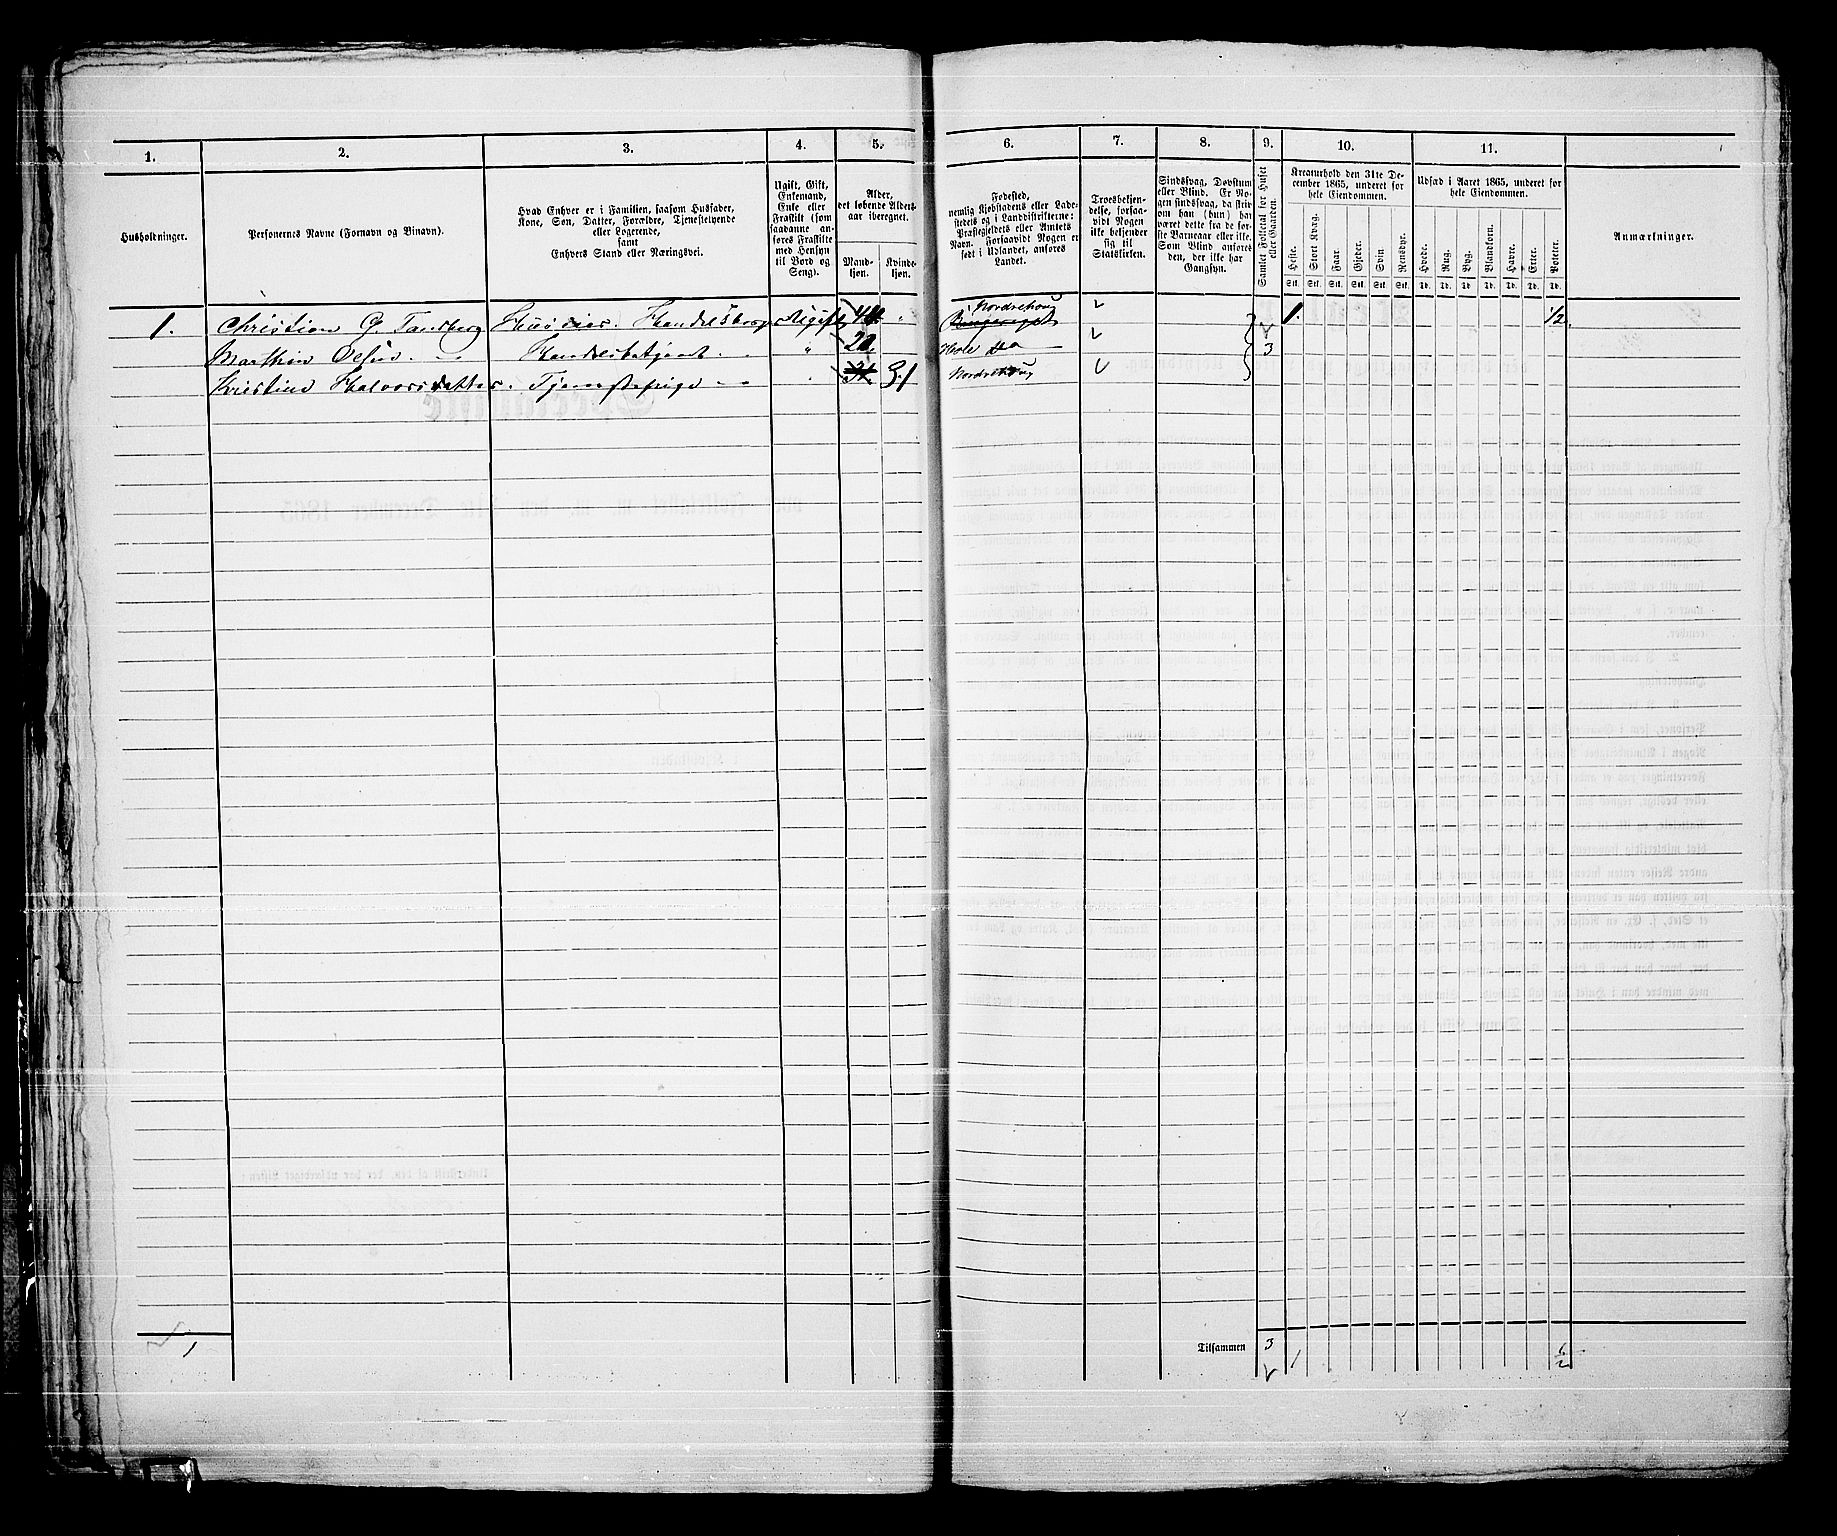 1. 2. 3. 4. 5. 6. 7. 8. 9. 10. 11.
Husholdninger.
Personernes Navne (Fornavn og Binavn).
Hvad Enhver er i Familien, saasom Husfader,
Kone, Søn, Datter, Forældre, Tjenestetyende
eller Logerende,
samt
Enhvers Stand eller Næringsvei.
Ugift, Gift,
Enkemand,
Enke eller
Fraskilt (som
saadanne an-
føres Fraskilte
med Hensyn
til Bord og
Seng).
Alder,
det løbende Alders-
aar iberegnet.
Mand-
kjøn.
Kvinde-
kjøn.
Fødested,
nemlig Kjøbstadens eller Lade-
stedets og i Landdistrikterne:
Præstegjeldets eller Amtets
Navn. Forsaavidt Nogen er
født i Udlandet, anføres
Landet.
Troesbekjen-
delse, forsaa-
vidt Nogen
ikke bekjender
sig til
Statskirken.
Sindssvag, Døvstum
eller Blind. Er No-
gen sindssvag, da skriv
om han (hun) har
været dette fra de før-
ste Barneaar eller ikke.
Som Blind anføres
den, der ikke har
Gangsyn.
Samlet Folketal for Huset
eller Gaarden.
Kreaturhold den 31te De-
cember 1865, underet for
hele Eiendommen.
Heste. Stort Kvæg. Faar. Gjeder. Svin. Rensdyr.
Stk. Stk. Stk. Stk. Stk. Stk.
Udsæd i Aaret 1865, underet for
hele Eiendommen.
Hvede. Rug. Byg. Blandkorn. Havre. Erter. Poteter.
Td. Td. Td. Td. Td. Td. Td.
Anmærkninger.
1. Christian G Tandberg Handelsborger Ugift Nordrehoug 1. 1/2.
Marthin Olsen. Handelsbetjent. " Hole 3
Kristine Halvorsdatter. Tjenestepige " 31 Nordrehoug
1 Tilsammen 3 1 1/2